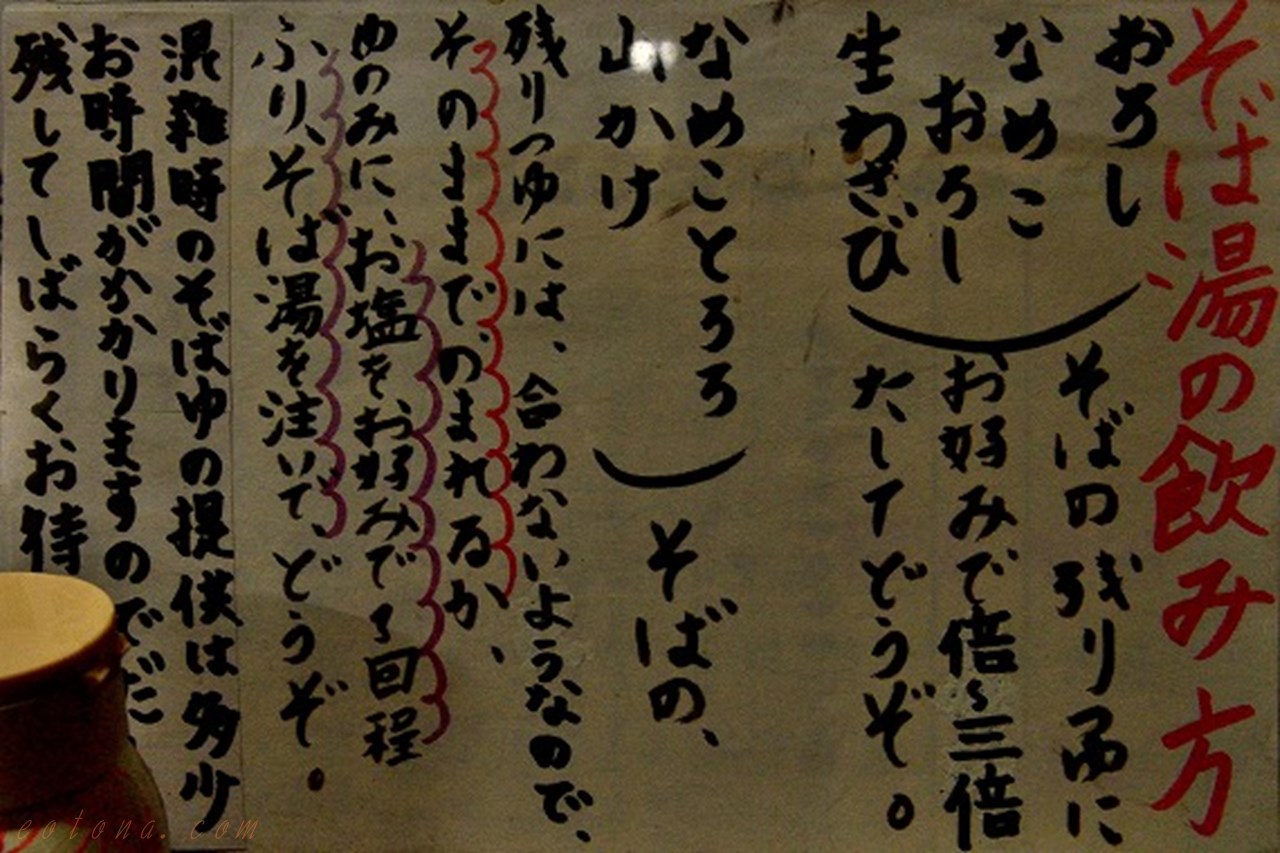 そば湯の飲み方
おろし
なめこ
おろし
生わさび
そばの残り汤に
お好みで倍~三倍
たしてどうぞ。
なめことろろ
山かけ
そばの、
残りつゆには、合わないようなので、
そのままでのまれるか、
めのみに、お塩を、お好みで3回程
ふり、そば湯を注いで、どうぞ。
混雑時のそばゆの提供は多少
お時間がかかりますので
残してしばらくお待
eotona.com